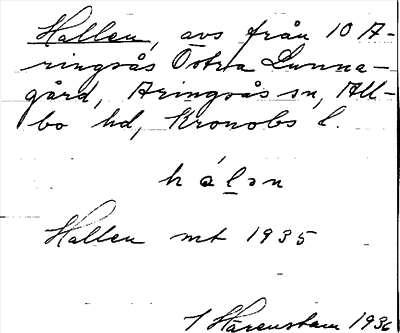 Hallen, avs från 10 A-
ringsås Östra Lunna-
gård, Aringsås sn, All-
bo hd, Kronobs l.
hálən
Hallen mt 1935
I Härenstam 1936